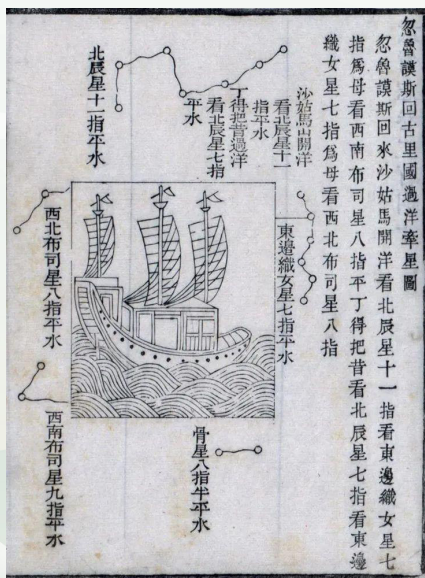 忽魯謨斯回古里國過洋牽星圖
忽魯謨斯回來沙姑馬開洋看北辰星十一指看東邊織女星七
指爲母看西南布司星八指平丁得把昔看北辰星七指看東邊
織女星七指爲母看西北布司星八指
沙姑馬山開洋
看北辰星十一
指平水
丁得把昔過洋
看北辰星七指
平水
北辰星十一指平水
東邊織女星七指平水
西北布司星八指平水
西南布司星九指平水
骨星八指半平水